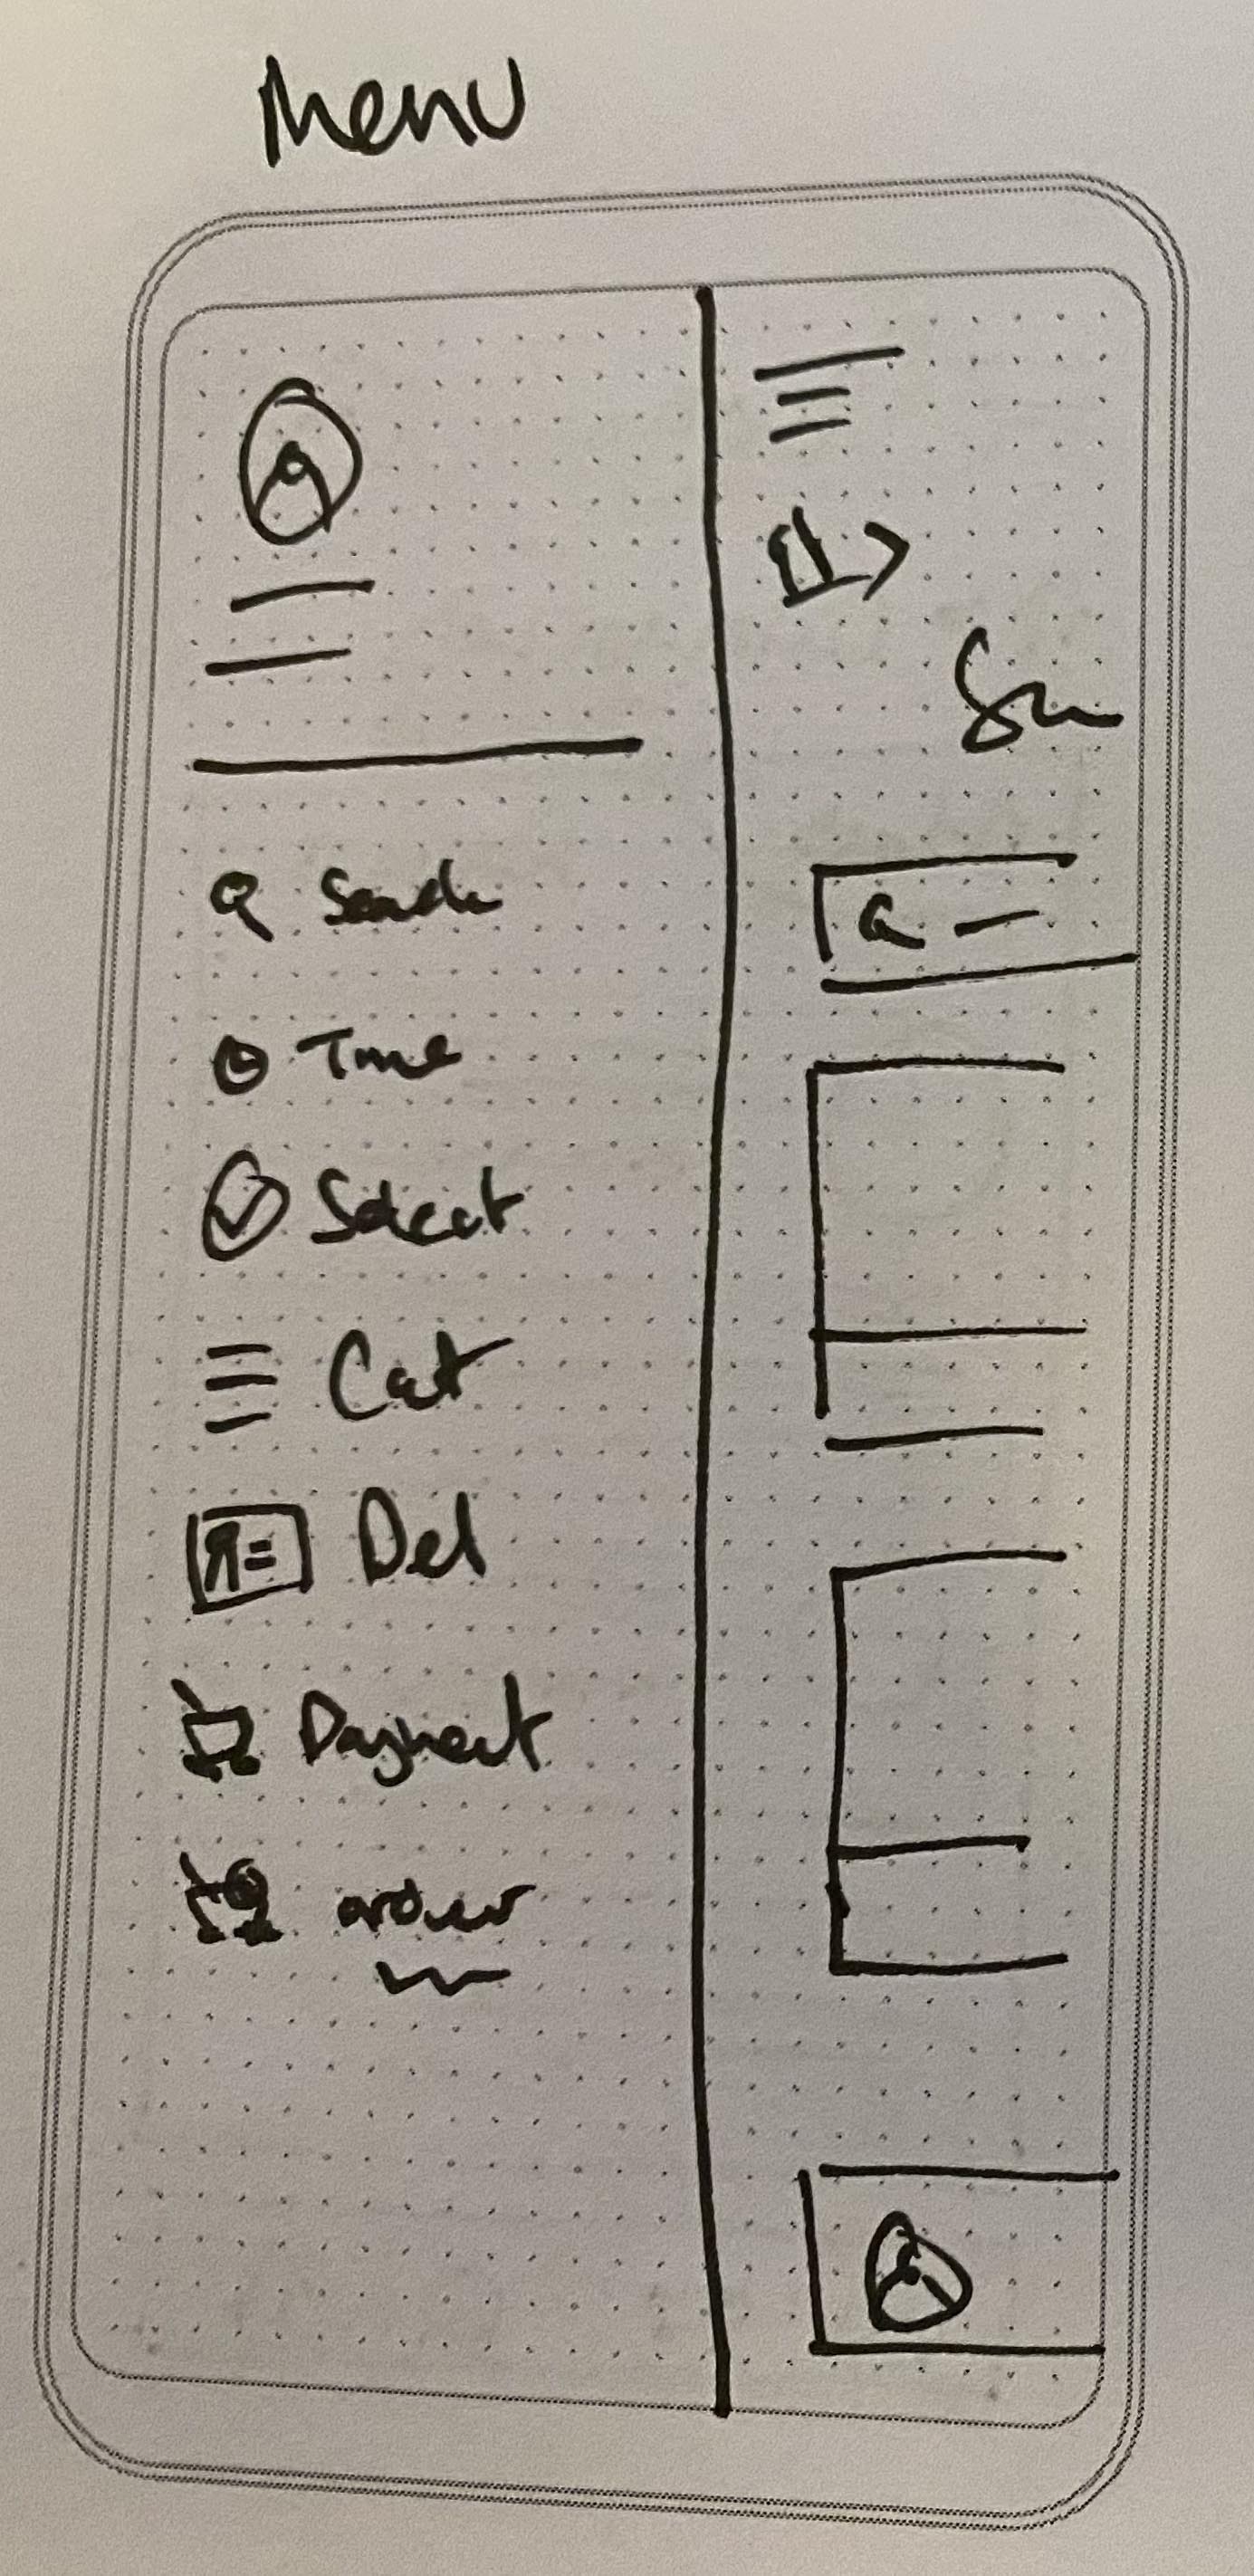 Menu
Search
Time
Select
Cat
Del
Payment
order